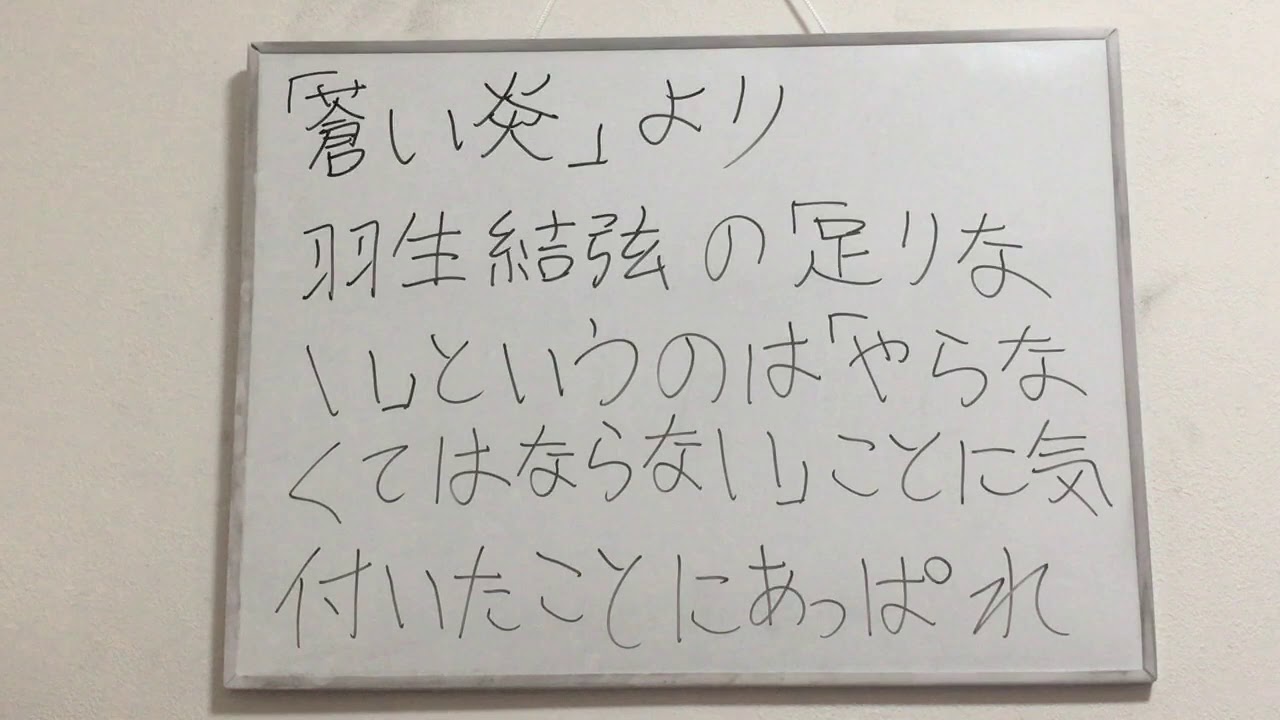 「蒼い炎」より
羽生結弦の「足りな
い」というのは「やらな
くてはならない」ことに気
付いたことにあっぱれ